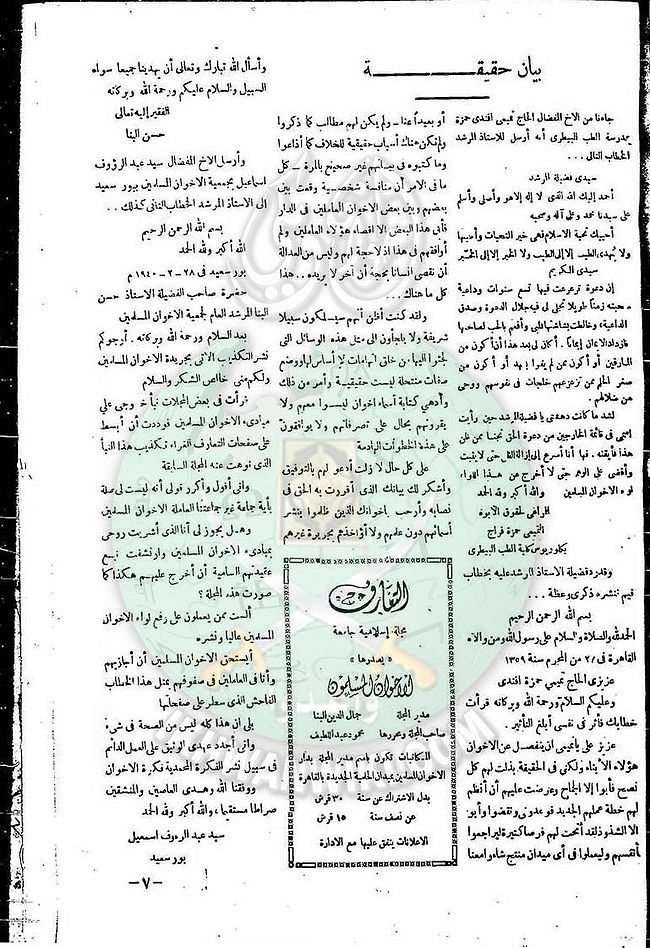 بيان حقيقـــــــــــة
جاءنا من الاخ المفضال الحاج تميمى افندى حمزة
بمدرسة الطب البيطرى أنه أرسل للاستاذ المرشد
الخطاب التالى ...
سيدى فضيلة المرشد
أحمد إليك الله الذى لا إله إلا هو وأصلى وأسلم
على سيدنا محمد وعلى آله وصحبه
أحييك تحية الاسلام فهى خير التحيات وأطيبها
ولا يهدى الطيب إلا إلى الطيب ولا الخير إلا إلى الخير
سيدى الكريم
إن دعوة ترعرعت فيها تسع سنوات وداعية
صحبته زمناً طويلا تجلى لى فيه جلال الدعوة وصدق
الداعية، وخالطت بشاشتها قلبى وأفعم بالحب لصاحبها
فازداد الاعان إيماناً. أكان لى بعد هذا أن أكون من
المارقين أو أكون ممن لم يفوا بعهد أو أكون من
صغار الحلم ممن تزعزعهم خلجات فى نفوسهم ووحى
من ضلالهم
لشد ما كانت دهشتى يا فضيلة المرشد حين رأيت
اسمى فى قائمة الخارجين من دعوة الحق تجنياً ممن ظن
هذا فأيقنه. فها أنا أسرع إلى إزالة الظل حتى لا يثبت
وأقضى على الوهم حتى لا أخرج من هذا اللواء
لواء الاخوان المسلمين والله أكبر ولله الحد
الراعى لحقوق الابوة
التميمى حمزة فراج
بكلوريوس كلية الطب البيطرى
وقد رد فضيلة الاستاذ المرشد عليه بخطاب
قيم ننشره ذكرى وعظة...
بسم الله الرحمن الرحيم
الحمد لله والصلاة والسلام على رسول الله ومن والاه
القاهرة فى ٢٠ من المحرم سنة ١٣٥٩
عزيزى الحاج تميمى حمزة افندى
وعليكم السلام ورحمة الله وبركاته قرأت
خطابك فأثر فى نفسى أبلغ التأثير.
عزيز على ياتميمى ان ينفصل عن الاخوان
هؤلاء الأبناء ولكنى فى الحقيقة بذلت لهم كل
نصح فأبوا إلا الجماح وعرضت عليهم أن أنظم
لهم خطة عملهم الجديد فوعدونى ونقضوا وأبوا
الا الشذوذ لقد أتحت لهم فرصا كثيرة ليراجعوا
أنفسهم وليعملوا فى أى ميدان منتج شاءوا معنا
أو بعيداً عنا - ولم يكن لهم مطالب كما ذكروا
ولم تكن هناك أسباب حقيقية للخلاف كما أذاعوا
وما كتبوه فى بيانهم غير صحيح بالمرة - كل
ما فى الامر أن منافسة شخصية وقعت بين
بعضهم وبين بعض الاخوان العاملين فى الدار
فأبى هذا البعض إلا اقصاء هؤلاء العاملين ولم
أوافقهم فى هذا إذ لا حجة لهم وليس من العدالة
أن نقصى انسانا بحجة أن آخر لا يريده .. هذا
كل ما هناك...
ولقد كنت أظن أنهم سيسلكون سبيلا
شريفة ولا يلجأون الى مثل هذه الوسائل التى
لجئوا اليها من خلق اتهامات لا أساس لها ووضع
صفات منتحلة ليست حقيقية وأمر من ذلك
وأدهى كتابة أسماء اخوان ليسوا معهم ولا
يقرونهم بحال على تصرفاتهم ولا يوافقونهم
على هذه الخطوات الهادمة
على كل حال لا زلت أدعو لهم بالتوفيق
وأشكر لك بيانك الذى أقررت به الحق فى
نصابه وأرحب باخوانك الذين ظلموا بنشر
أسمائهم دون علمهم ولا أؤاخذهم بجريرة غيرهم
التعارف
مجلة إسلامية جامعة
« يصدرها »
الاخوان المسلمون
مدير المجلة جمال الدين البنا
صاحب المجلة ومحررها محمود عبد اللطيف
المكاتبات تكون باسم مدير المجلة بدار
الاخوان المسلمين بميدان الحلمية الجديدة بالقاهرة
بدل الاشتراك عن سنة ٣٠ قرش
عن نصف سنة ١٥ قرش
الاعلانات يتفق عليها مع الادارة
وأسأل الله تبارك وتعالى أن يهدينا جميعا سواء
السبيل والسلام عليكم ورحمة الله وبركاته
الفقير إليه تعالى
حسن البنا
وأرسل الاخ المفضال سيد عبد الرؤوف
اسماعيل بجمعية الاخوان المسلمين ببور سعيد
الى الاستاذ المرشد الخطاب التالى كذلك ..
بسم الله الرحمن الرحيم
الله أكبر ولله الحمد
بور سعيد فى ٢٨-٢-١٩٤٠ م
حضرة صاحب الفضيلة الاستاذ حسن
البنا المرشد العام لجمعية الاخوان المسلمين
بعد السلام ورحمة الله وبركاته. أرجوكم
نشر التكذيب الآتى بجريدة الاخوان المسلمين
ولكم منى خالص الشكر والسلام
قرأت فى بعض المجلات نبأ خروجى على
مبادىء الاخوان المسلمين فوددت أن أبسط
على صفحات التعارف الغراء تكذيب هذا النبأ
الذى نوهت عنه المجلة السابقة
وانى أقول وأكرر قولى أنه ليست لى صلة
بأية جماعة غير جماعتنا العاملة الاخوان المسلمين
وهل يجوز لى أنا الذى أشربت روحى
بمبادىء الاخوان المسلمين وارتشفت نبع
عقيدتهم السامية أن أخرج عليهم هكذا كما
صورت هذه المجلة؟
ألست ممن يعملون على رفع لواء الاخوان
المسلمين عاليا ونشره
أيستحق الاخوان المسلمين أن أجازيهم
وأنا فى العاملين فى صفوفهم بمثل هذا الخطاب
الفاحش الذى سطر على صفحتها
بلى ان هذا كله ليس من الصحة فى شىء
وانى أجدد عهدى الوثيق على العمل الدائم
فى سبيل نشر الفكرة المحمدية فكرة الاخوان
ووفقنا الله وهدى العاصين والمنشقين
صراطا مستقيما، والله أكبر ولله الحمد
سيد عبد الرءوف اسمعيل
بور سعيد
-٧-